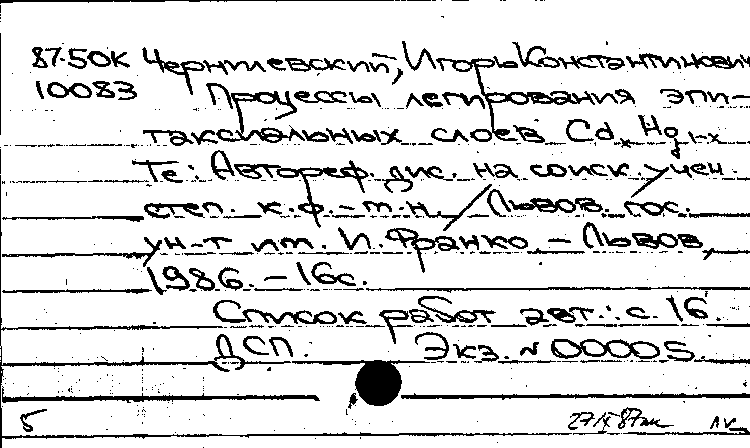 87-50К Чернилевский, Игорь Константинович
10083 Процессы легирования эпи-
таксиальных слоев CdxHg1-x
Te: Автореф. дис. на соиск. учен.
степ. к.ф.-м.н. / Львов. гос.
ун-т им. И. Франко. - Львов,
1986. - 16с.
Список работ авт.: с. 16.
ДСП. Экз. № 00005.
5